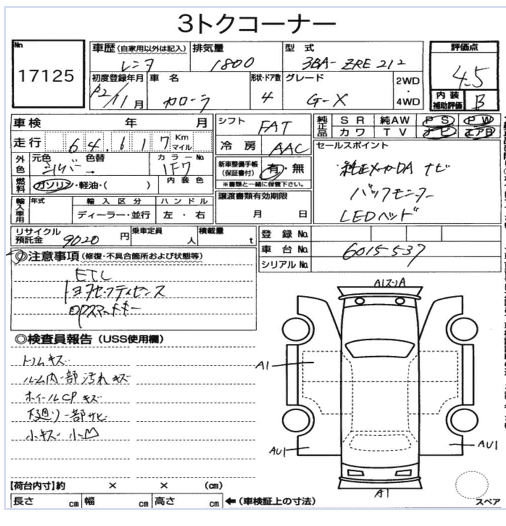 3トクコーナー
No.
17125
車歴 (自家用以外は記入)
レンタ
排気量
1800
型式
3BA-ZRE212
評価点
4.5
初度登録年月
R2/11月
車名
カローラ
形状・ドア数
4
グレード
G-X
2WD
・
4WD
内装
補助評価
B
車検 年 月
シフト
FAT
純正品
SR 純AW PS PW
カワ TV ナビ エアB
走行 64,617 Km マイル
冷房
AAC
セールスポイント
純正メーカーDAナビ
バックモニター
LEDヘッド
外色
元色
シルバー
色替
カラーNo.
1F7
新車整備手帳
(保証書付)
有・無
※書類と一緒に保管下さい。
燃料
ガソリン・軽油・( )
内装色
輸入車用
年式
輸入区分
ディーラー・並行
ハンドル
左・右
譲渡書類有効期限
月 日
リサイクル
預託金
9020円
乗車定員
人
積載量
t
登録No.
車台No.
6015537
シリアルNo.
◎注意事項 (修復・不具合箇所および状態等)
ETC
トヨタセーフティセンス
◎検査員報告 (USS使用欄)
トリムキズ
ルーム内一部汚れキズ
ホイールCPキズ
下廻り一部サビ
小キズ 小凹
A1
AU1
AU1
A1
【荷台内寸】約 × × (cm)
長さ cm 幅 cm 高さ cm ←(車検証上の寸法)
スペア